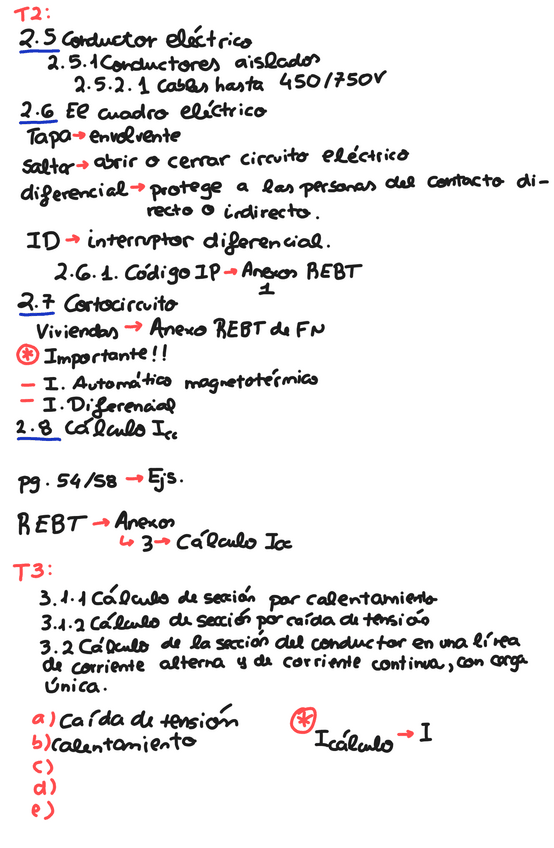 T2:
2.5 Conductor eléctrico
2.5.1 Conductores aislados
2.5.2.1 Cables hasta 450/750V
2.6 El cuadro eléctrico
Tapa→envolvente
Saltar→abrir o cerrar circuito eléctrico
diferencial→protege a las personas del contacto di-
recto o indirecto.
ID→interruptor diferencial.
2.6.1. Código IP→Anexos REBT
1
2.7 Cortocircuito
Viviendas→Anexo REBT de FN
* Importante!!
- I. Automático magnetotérmico
- I. Diferencial
2.8 Cálculo Icc
pg. 54/58→Ejs.
REBT→Anexos
↳ 3→Cálculo Icc
T3:
3.1.1 Cálculo de sección por calentamiento
3.1.2 Cálculo de sección por caída de tensión
3.2 Cálculo de la sección del conductor en una línea
de corriente alterna y de corriente continua, con carga
única.
a) Caída de tensión
b) Calentamiento
c)
d)
e)
* Icálculo→I